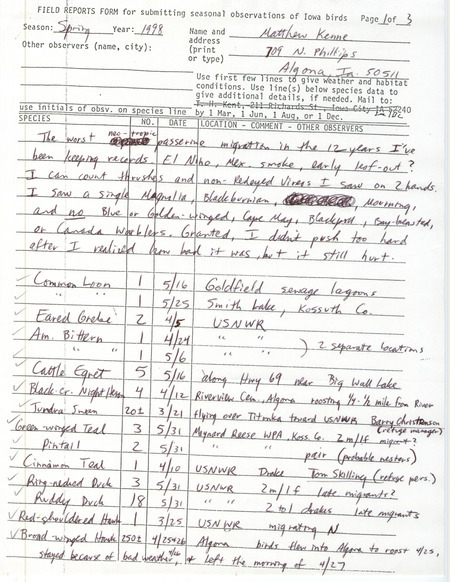 FIELD REPORTS FORM for submitting seasonal observations of Iowa birds Page 1 of 3
Season: Spring Year: 1998 Name and Matthew Kenne
address
Other observers (name, city): (print 709 N. Phillips
or type)
Algona, Ia. 50511
Use first few lines to give weather and habitat
conditions. Use line(s) below species data to
give additional details, if needed. Mail to:
T. H. Kent, 211 Richards St., Iowa City IA 52240
use initials of obsv. on species line by 1 Mar, 1 Jun, 1 Aug, or 1 Dec.
SPECIES NO. DATE LOCATION - COMMENT - OTHER OBSERVERS
The worst neo-tropic passerine migration in the 12 years I've
been keeping records. El Niño, Mex. smoke, early leaf-out?
I can count thrushes and non-Redeyed Vireos I saw on 2 hands.
I saw a single Magnolia, Blackburnian, Mourning,
and no Blue or Golden-winged, Cape May, Blackpoll, Bay-breasted,
or Canada Warblers. Granted, I didn't push too hard
after I realized how bad it was, but it still hurt.
Common Loon 1 5/16 Goldfield sewage lagoons
" " 1 5/25 Smith Lake, Kossuth Co.
Eared Grebe 2 4/5 USNWR
Am. Bittern 1 4/24 " " ) 2 separate locations
" " 1 5/6 " "
Cattle Egret 5 5/16 along Hwy 69 near Big Wall Lake
Black-cr. Night Heron 4 4/12 Riverview Cem., Algona roosting 1/4-1/2 mile from River
Tundra Swan 201 3/21 flying over Titonka toward USNWR Barry Christenson
(refuge manager)
Green-winged Teal 3 5/31 Maynard Reese WPA, Koss. Co. 2m/1f migrant?
Pintail 2 5/31 pair (probable nesters)
Cinnamon Teal 1 4/10 USNWR Drake Tom Skilling (refuge pers.)
Ring-necked Duck 3 5/31 USNWR 2m/1f late migrants?
Ruddy Duck 18 5/31 " " 2 to 1 drakes late migrants
Red-shouldered Hawk 1 3/25 USNWR migrating N
Broad-winged Hawk 250± 4/25&26 Algona birds flew into Algona to roost 4/25,
stayed because of bad weather 4/26, & left the morning of 4/27